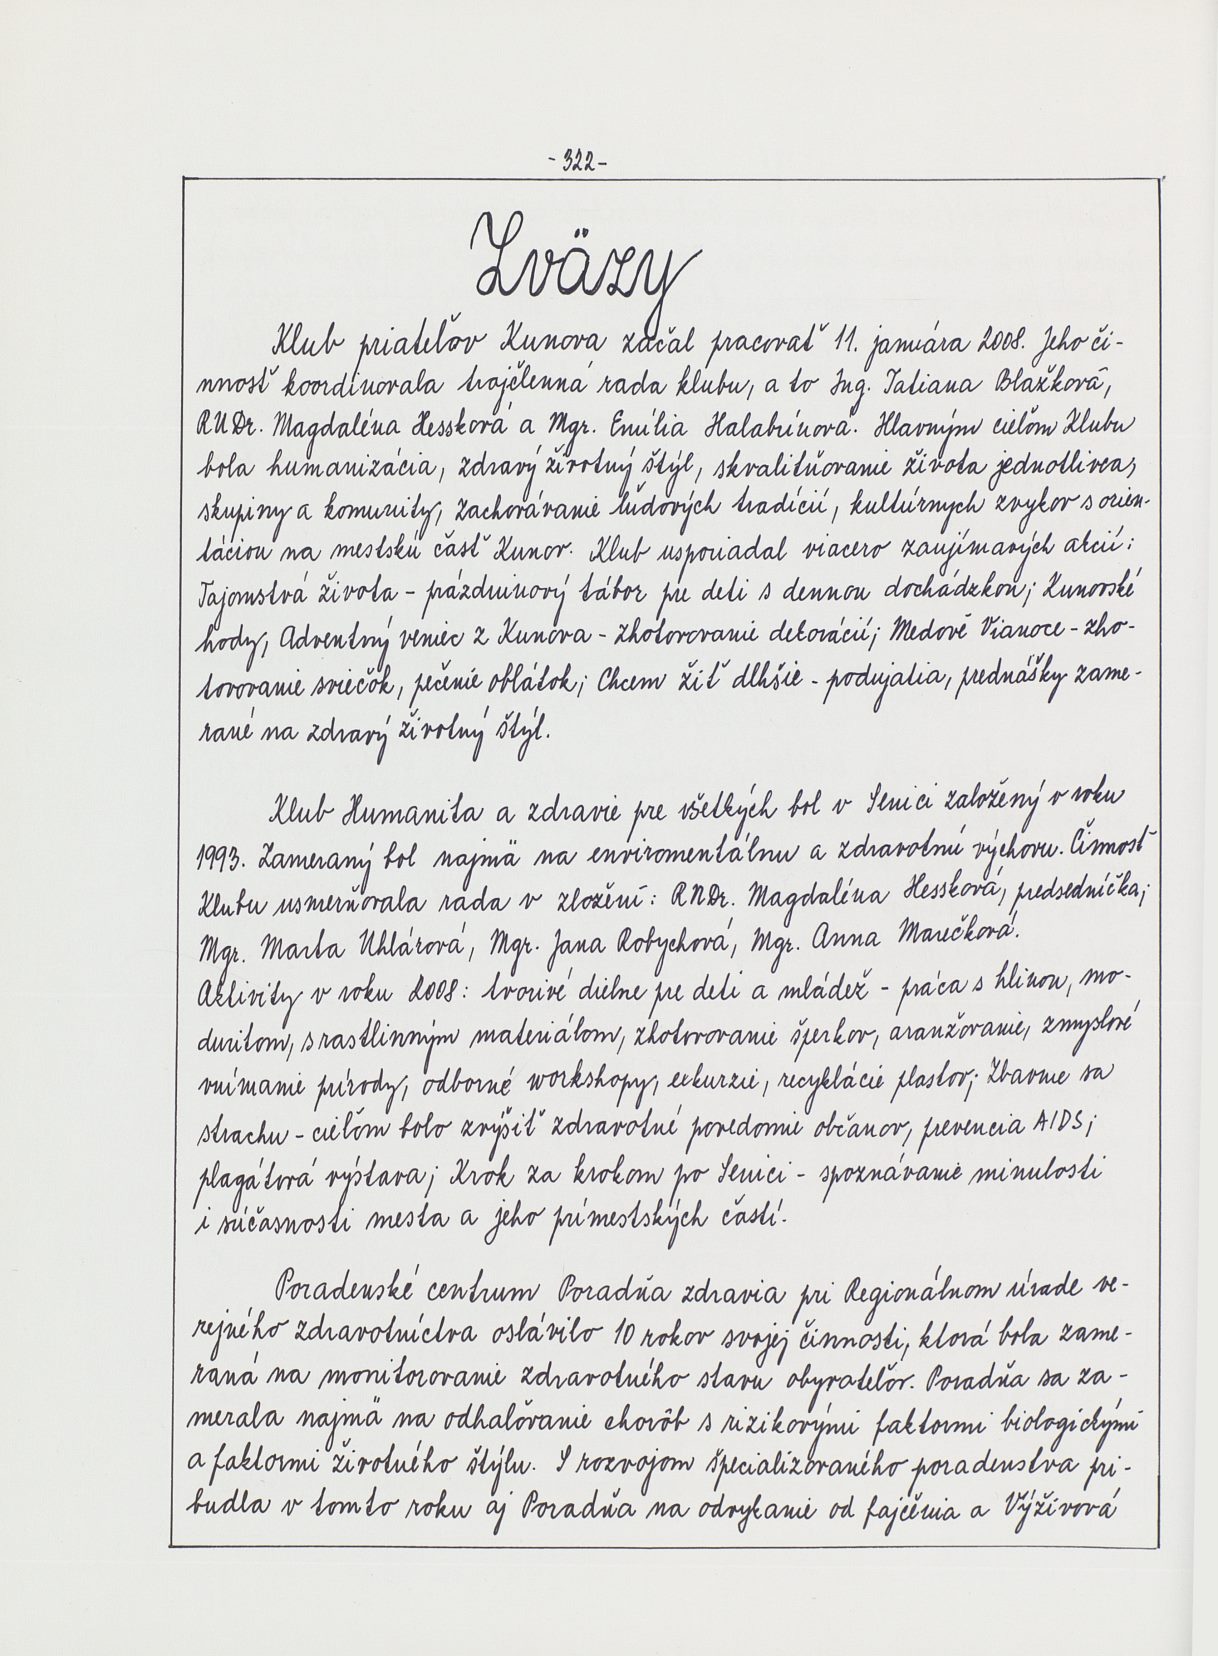 - 322 -
Zväzy
Klub priateľov Kunova začal pracovať 11. januára 2008. Jeho či-
nnosť koordinovala trojčlenná rada klubu, a to Ing. Tatiana Blažková,
RNDr. Magdaléna Hessková a Mgr. Emília Halabrínová. Hlavným cieľom Klubu
bola humanizácia, zdravý životný štýl, skvalitňovanie života jednotlivca,
skupiny a komunity, zachovávanie ľudových tradícií, kultúrnych zvykov s orien-
táciou na mestskú časť Kunov. Klub usporiadal viacero zaujímavých akcií:
Tajomstvá života - prázdninový tábor pre deti s dennou dochádzkou; Kunovské
hody, Adventný veniec z Kunova - zhotovovanie dekorácií; Medové Vianoce - zho-
tovovanie sviečok, pečenie oblátok; Chcem žiť dlhšie - podujatia, prednášky zame-
rané na zdravý životný štýl.
Klub Humanita a zdravie pre všetkých bol v Senici založený v roku
1993. Zameraný bol najmä na enviromentálnu a zdravotnú výchovu. Činnosť
Klubu usmerňovala rada v zložení: RNDr. Magdaléna Hessková, predsedníčka;
Mgr. Marta Uhlárová, Mgr. Jana Robychová, Mgr. Anna Marečková.
Aktivity v roku 2008: tvorivé dielne pre deti a mládež - práca s hlinou, mo-
duritom, s rastlinným materiálom, zhotovovanie šperkov, aranžovanie, zmyslové
vnímanie prírody, odborné workshopy, exkurzie, recyklácie plastov; Zbavme sa
strachu - cieľom bolo zvýšiť zdravotné povedomie občanov, prevencia AIDS;
plagátová výstava; Krok za krokom po Senici - spoznávanie minulosti
i súčasnosti mesta a jeho prímestských častí.
Poradenské centrum Poradňa zdravia pri Regionálnom úrade ve-
rejného zdravotníctva oslávilo 10 rokov svojej činnosti, ktorá bola zame-
raná na monitorovanie zdravotného stavu obyvateľov. Poradňa sa za-
merala najmä na odhaľovanie chorôb s rizikovými faktormi biologickými
a faktormi životného štýlu. S rozvojom špecializovaného poradenstva pri-
budla v tomto roku aj Poradňa na odvykanie od fajčenia a Výživová